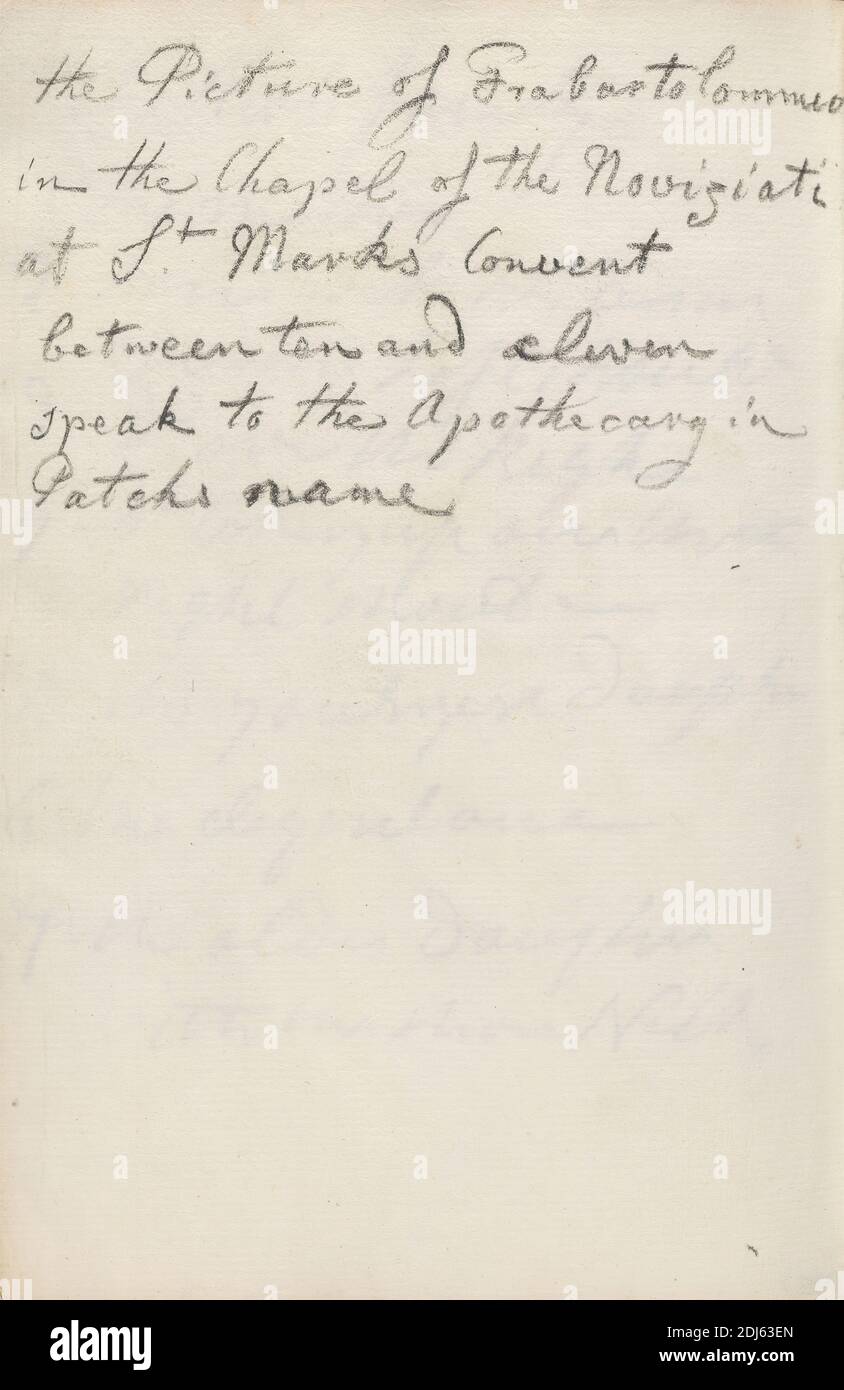 the Picture of Frabartolommeo
in the Chapel of the Noviziati
at St. Marks Convent
between ten and eleven
speak to the Apothecary in
Patchs name
alamy
alamy
alamy
Image ID: 2DJ63EN
www.alamy.com